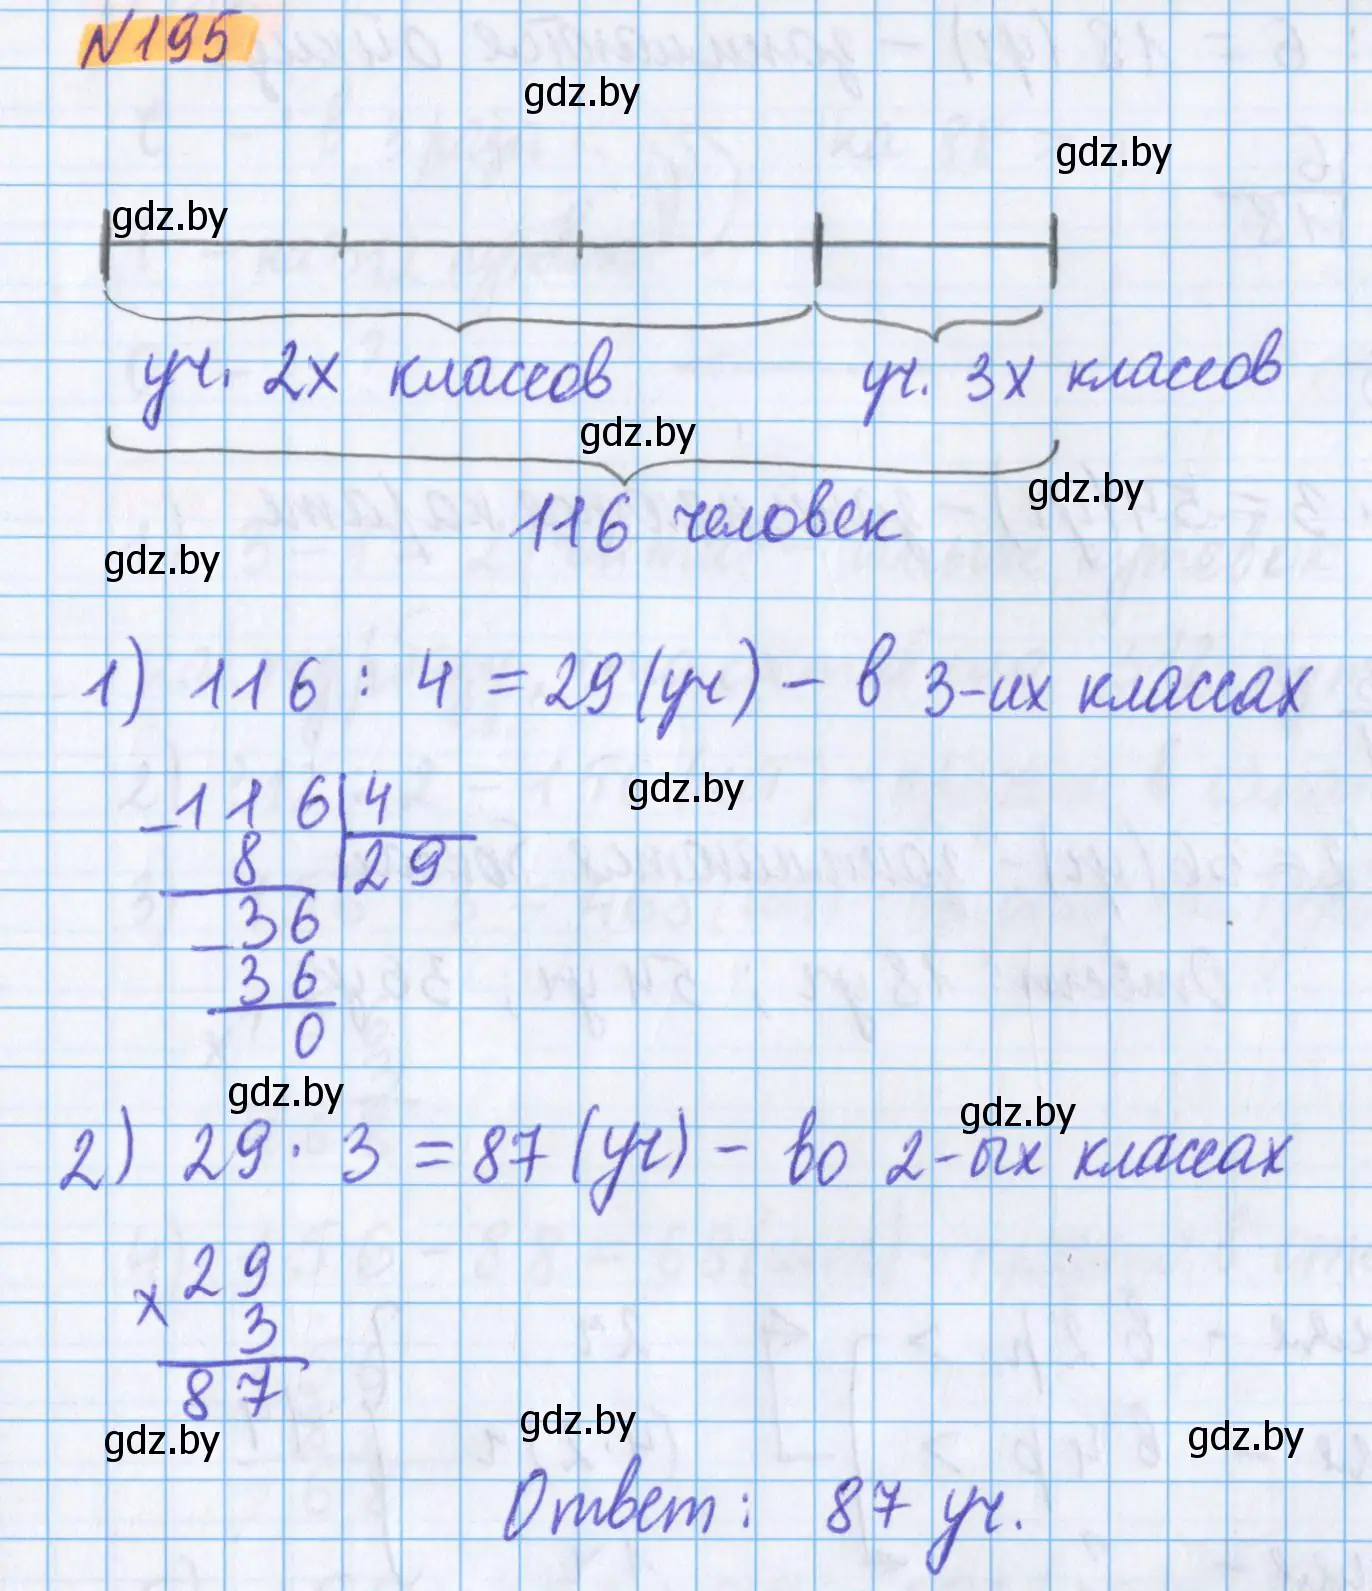 N195
gdz.by
gdz.by
gdz.by
уч. 2х классов уч. 3х классов
gdz.by
gdz.by
116 человек
gdz.by
1) 116 : 4 = 29 (уч) – в 3-их классах
gdz.by
–116|4
8 |29
–36
36
0
gdz.by
gdz.by
2) 29 · 3 = 87 (уч) – во 2-ых классах
29
х 3
87
gdz.by
gdz.by
gdz.by
Ответ: 87 уч.